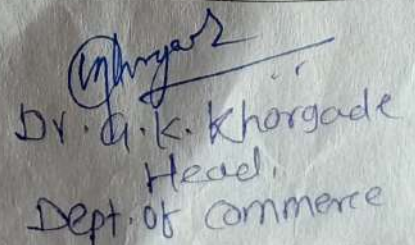 Dr. G. K. Khorgade
Head.
Dept. of Commerce